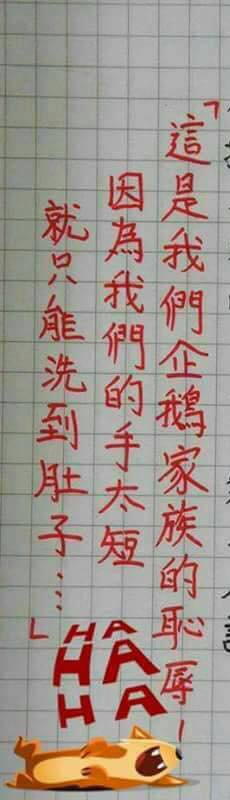 「這是我們企鵝家族的恥辱！
因為我們的手太短
就只能洗到肚子…」
HA
HA
HA